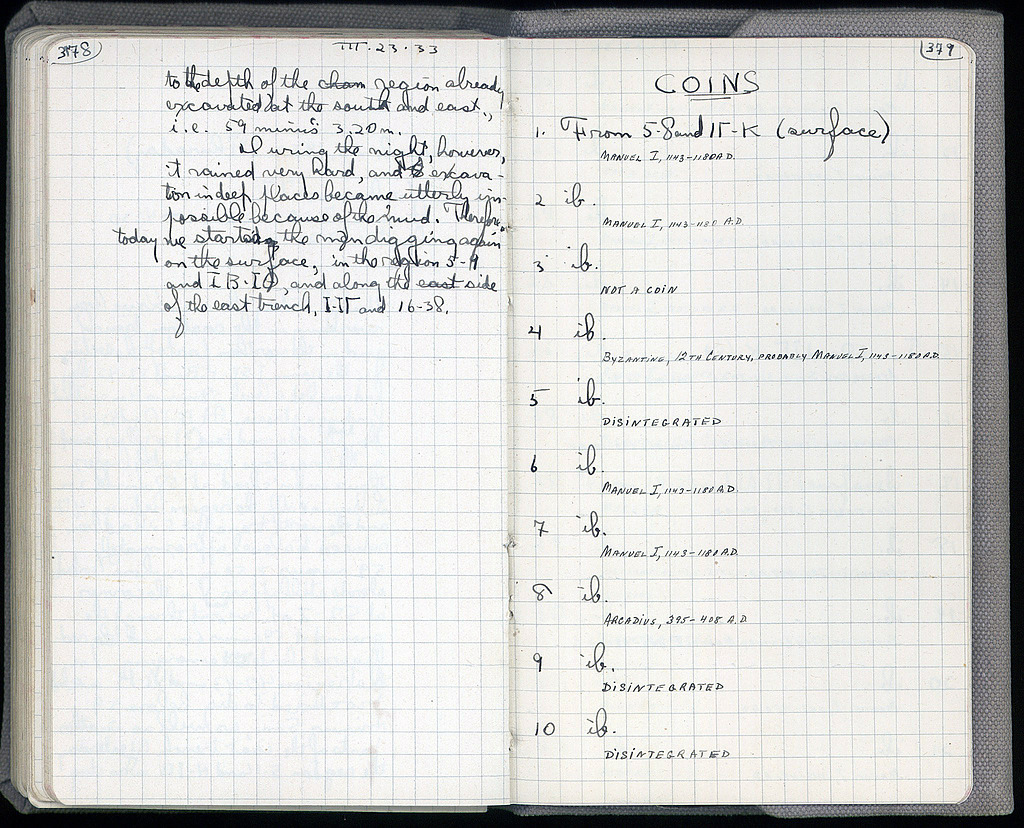 378
III.23.33
to the depth of the cham region already
excavated at the south and east,
i.e. 59 minus 3.20m.
During the night, however,
it rained very hard, and excava-
tion in deep places became utterly im-
possible because of the mud. Therefore
today we start the men digging again
on the surface, in the region 5-9
and IB-IΘ, and along the east side
of the east trench, I-IΓ and 16-38.
379
COINS
1. From 5-8 and IΓ-K (surface)
MANUEL I, 1143-1180 A.D.
2 ib.
MANUEL I, 1143-1180 A.D.
3 ib.
NOT A COIN
4 ib.
BYZANTINE, 12TH CENTURY, PROBABLY MANUEL I, 1143-1180 A.D.
5 ib.
DISINTEGRATED
6 ib.
MANUEL I, 1143-1180 A.D.
7 ib.
MANUEL I, 1143-1180 A.D.
8 ib.
ARCADIUS, 395-408 A.D.
9 ib.
DISINTEGRATED
10 ib.
DISINTEGRATED